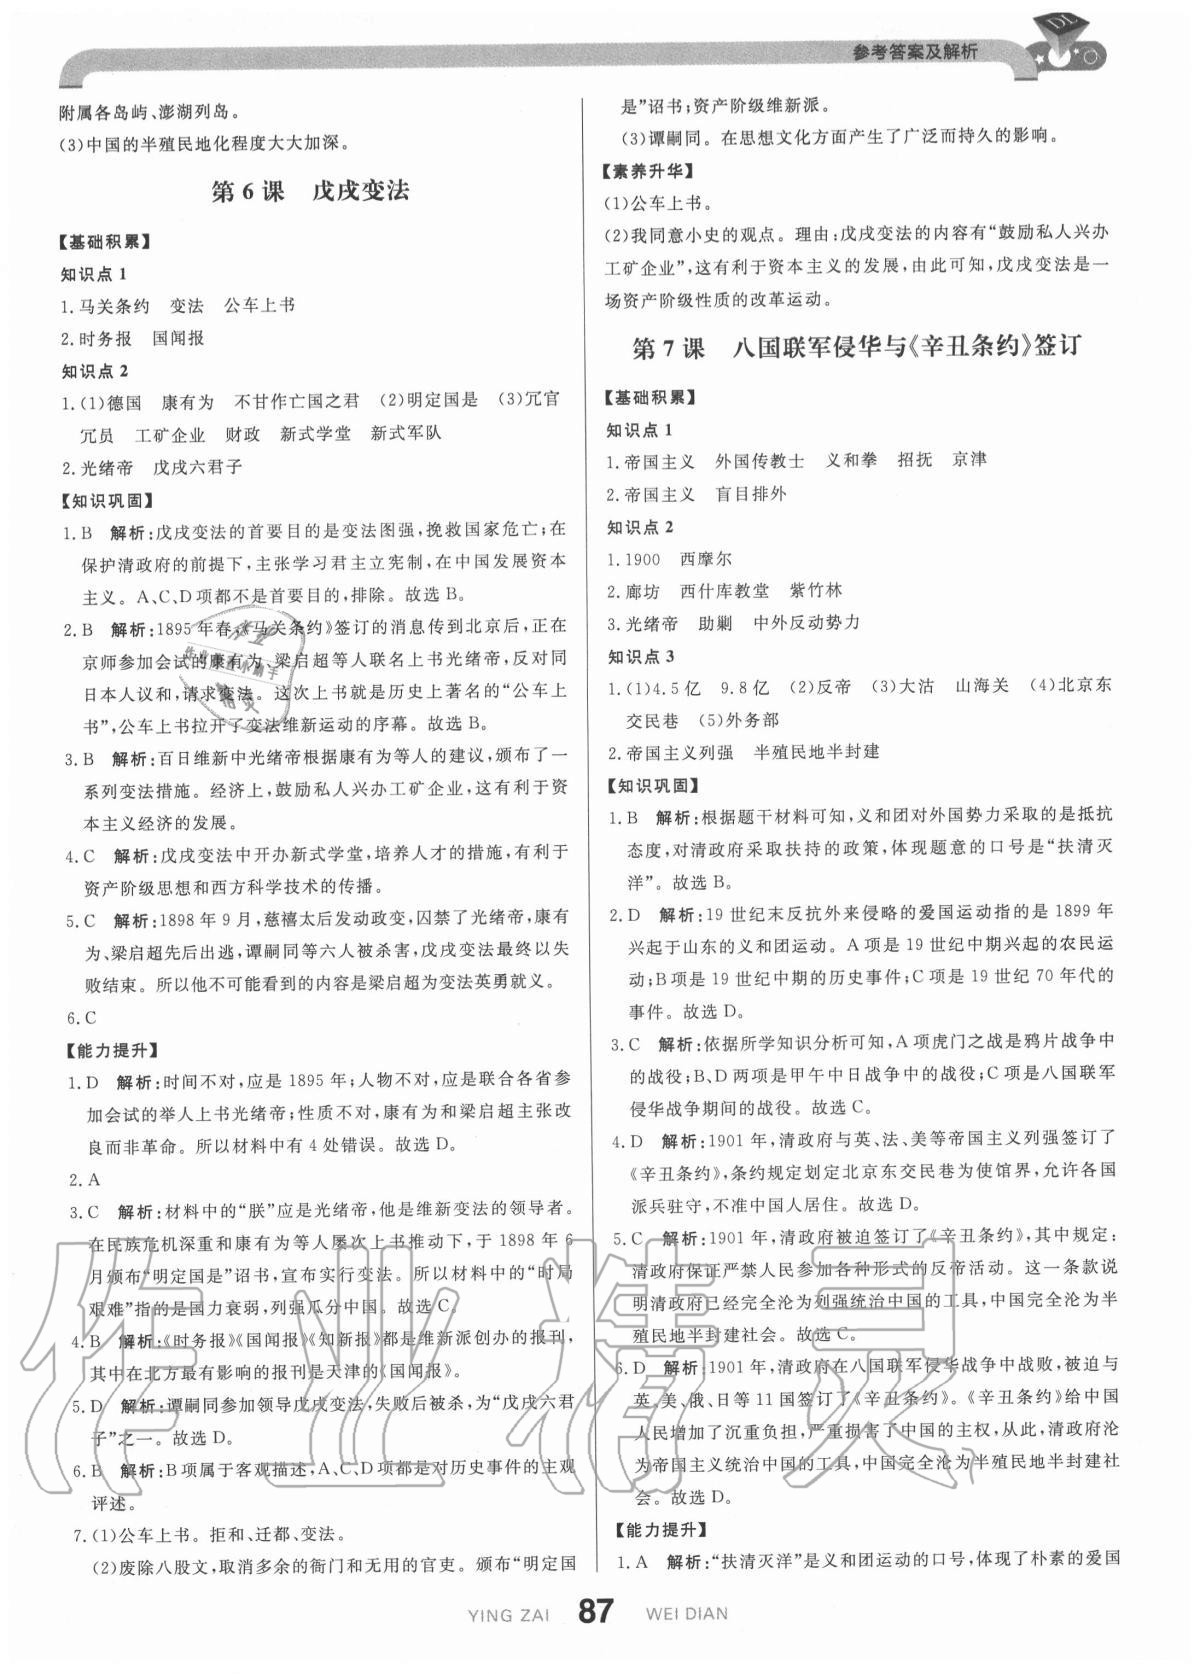 参考答案及解析
附属各岛屿、澎湖列岛。
(3)中国的半殖民地化程度大大加深。
第6课　戊戌变法
【基础积累】
知识点1
1.马关条约　变法　公车上书
2.时务报　国闻报
知识点2
1.(1)德国　康有为　不甘作亡国之君　(2)明定国是　(3)冗官
冗员　工矿企业　财政　新式学堂　新式军队
2.光绪帝　戊戌六君子
【知识巩固】
1.B　解析:戊戌变法的首要目的是变法图强,挽救国家危亡;在
保护清政府的前提下,主张学习君主立宪制,在中国发展资本
主义。A、C、D项都不是首要目的,排除。故选B。
2.B　解析:1895年春,《马关条约》签订的消息传到北京后,正在
京师参加会试的康有为、梁启超等人联名上书光绪帝,反对同
日本人议和,请求变法。这次上书就是历史上著名的“公车上
书”,公车上书拉开了变法维新运动的序幕。故选B。
3.B　解析:百日维新中光绪帝根据康有为等人的建议,颁布了一
系列变法措施。经济上,鼓励私人兴办工矿企业,这有利于资
本主义经济的发展。
4.C　解析:戊戌变法中开办新式学堂,培养人才的措施,有利于
资产阶级思想和西方科学技术的传播。
5.C　解析:1898年9月,慈禧太后发动政变,囚禁了光绪帝,康有
为、梁启超先后出逃,谭嗣同等六人被杀害,戊戌变法最终以失
败结束。所以他不可能看到的内容是梁启超为变法英勇就义。
6.C
【能力提升】
1.D　解析:时间不对,应是1895年;人物不对,应是联合各省参
加会试的举人上书光绪帝;性质不对,康有为和梁启超主张改
良而非革命。所以材料中有4处错误。故选D。
2.A
3.C　解析:材料中的“朕”应是光绪帝,他是维新变法的领导者。
在民族危机深重和康有为等人屡次上书推动下,于1898年6
月颁布“明定国是”诏书,宣布实行变法。所以材料中的“时局
艰难”指的是国力衰弱,列强瓜分中国。故选C。
4.B　解析:《时务报》《国闻报》《知新报》都是维新派创办的报刊,
其中在北方最有影响的报刊是天津的《国闻报》。
5.D　解析:谭嗣同参加领导戊戌变法,失败后被杀,为“戊戌六君
子”之一。故选D。
6.B　解析:B项属于客观描述,A、C、D项都是对历史事件的主观
评述。
7.(1)公车上书。拒和、迁都、变法。
(2)废除八股文,取消多余的衙门和无用的官吏。颁布“明定国
是”诏书;资产阶级维新派。
(3)谭嗣同。在思想文化方面产生了广泛而持久的影响。
【素养升华】
(1)公车上书。
(2)我同意小史的观点。理由:戊戌变法的内容有“鼓励私人兴办
工矿企业”,这有利于资本主义的发展,由此可知,戊戌变法是一
场资产阶级性质的改革运动。
第7课　八国联军侵华与《辛丑条约》签订
【基础积累】
知识点1
1.帝国主义　外国传教士　义和拳　招抚　京津
2.帝国主义　盲目排外
知识点2
1.1900　西摩尔
2.廊坊　西什库教堂　紫竹林
3.光绪帝　助剿　中外反动势力
知识点3
1.(1)4.5亿　9.8亿　(2)反帝　(3)大沽　山海关　(4)北京东
交民巷　(5)外务部
2.帝国主义列强　半殖民地半封建
【知识巩固】
1.B　解析:根据题干材料可知,义和团对外国势力采取的是抵抗
态度,对清政府采取扶持的政策,体现题意的口号是“扶清灭
洋”。故选B。
2.D　解析:19世纪末反抗外来侵略的爱国运动指的是1899年
兴起于山东的义和团运动。A项是19世纪中期兴起的农民运
动;B项是19世纪中期的历史事件;C项是19世纪70年代的
事件。故选D。
3.C　解析:依据所学知识分析可知,A项虎门之战是鸦片战争中
的战役;B、D两项是甲午中日战争中的战役;C项是八国联军
侵华战争期间的战役。故选C。
4.D　解析:1901年,清政府与英、法、美等帝国主义列强签订了
《辛丑条约》,条约规定划定北京东交民巷为使馆界,允许各国
派兵驻守,不准中国人居住。故选D。
5.C　解析:1901年,清政府被迫签订了《辛丑条约》,其中规定:
清政府保证严禁人民参加各种形式的反帝活动。这一条款说
明清政府已经完全沦为列强统治中国的工具,中国完全沦为半
殖民地半封建社会。故选C。
6.D　解析:1901年,清政府在八国联军侵华战争中战败,被迫与
英、美、俄、日等11国签订了《辛丑条约》。《辛丑条约》给中国
人民增加了沉重负担,严重损害了中国的主权,从此,清政府沦
为帝国主义统治中国的工具,中国完全沦为半殖民地半封建社
会。故选D。
【能力提升】
1.A　解析:“扶清灭洋”是义和团运动的口号,体现了朴素的爱国
YING ZAI　87　WEI DIAN
作业精灵